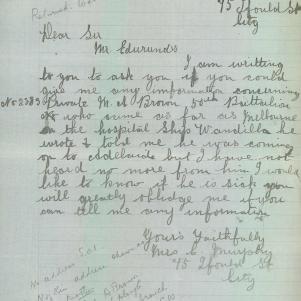 75 Gould St
City
Dear Sir
Mr Edmunds
I am writting
to you to ask you if you could
give me any information concerning
No 2383 Private M. A Brown 50th Battalion
who came as far as Melbourne
on the hospital Ship Wandilla he
wrote & told me he was coming
on to Adelaide but I have not
heard no more from him I would
like to know if he is sick you
will greatly oblidge me if you
can tell me any information
Yours Faithfully
Mrs C. Murphy
75 Gould St
City